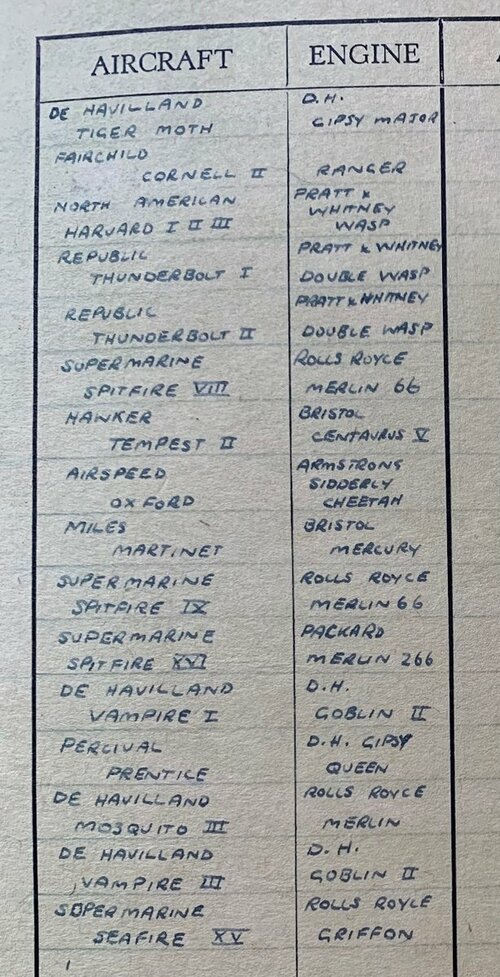 AIRCRAFT ENGINE
DE HAVILLAND D.H.
TIGER MOTH GIPSY MAJOR
FAIRCHILD
CORNELL II RANGER
NORTH AMERICAN PRATT &
WHITNEY
HARVARD I II III WASP
REPUBLIC PRATT & WHITNEY
THUNDERBOLT I DOUBLE WASP
REPUBLIC PRATT & WHITNEY
THUNDERBOLT II DOUBLE WASP
SUPERMARINE ROLLS ROYCE
SPITFIRE VIII MERLIN 66
HAWKER BRISTOL
TEMPEST II CENTAURUS V
AIRSPEED ARMSTRONG
SIDDERLY
OXFORD CHEETAH
MILES BRISTOL
MARTINET MERCURY
SUPERMARINE ROLLS ROYCE
SPITFIRE IX MERLIN 66
SUPERMARINE PACKARD
SPITFIRE XVI MERLIN 266
DE HAVILLAND D.H.
VAMPIRE I GOBLIN II
PERCIVAL D.H. GIPSY
PRENTICE QUEEN
DE HAVILLAND ROLLS ROYCE
MOSQUITO III MERLIN
DE HAVILLAND D.H.
VAMPIRE III GOBLIN II
SUPERMARINE ROLLS ROYCE
SEAFIRE XV GRIFFON